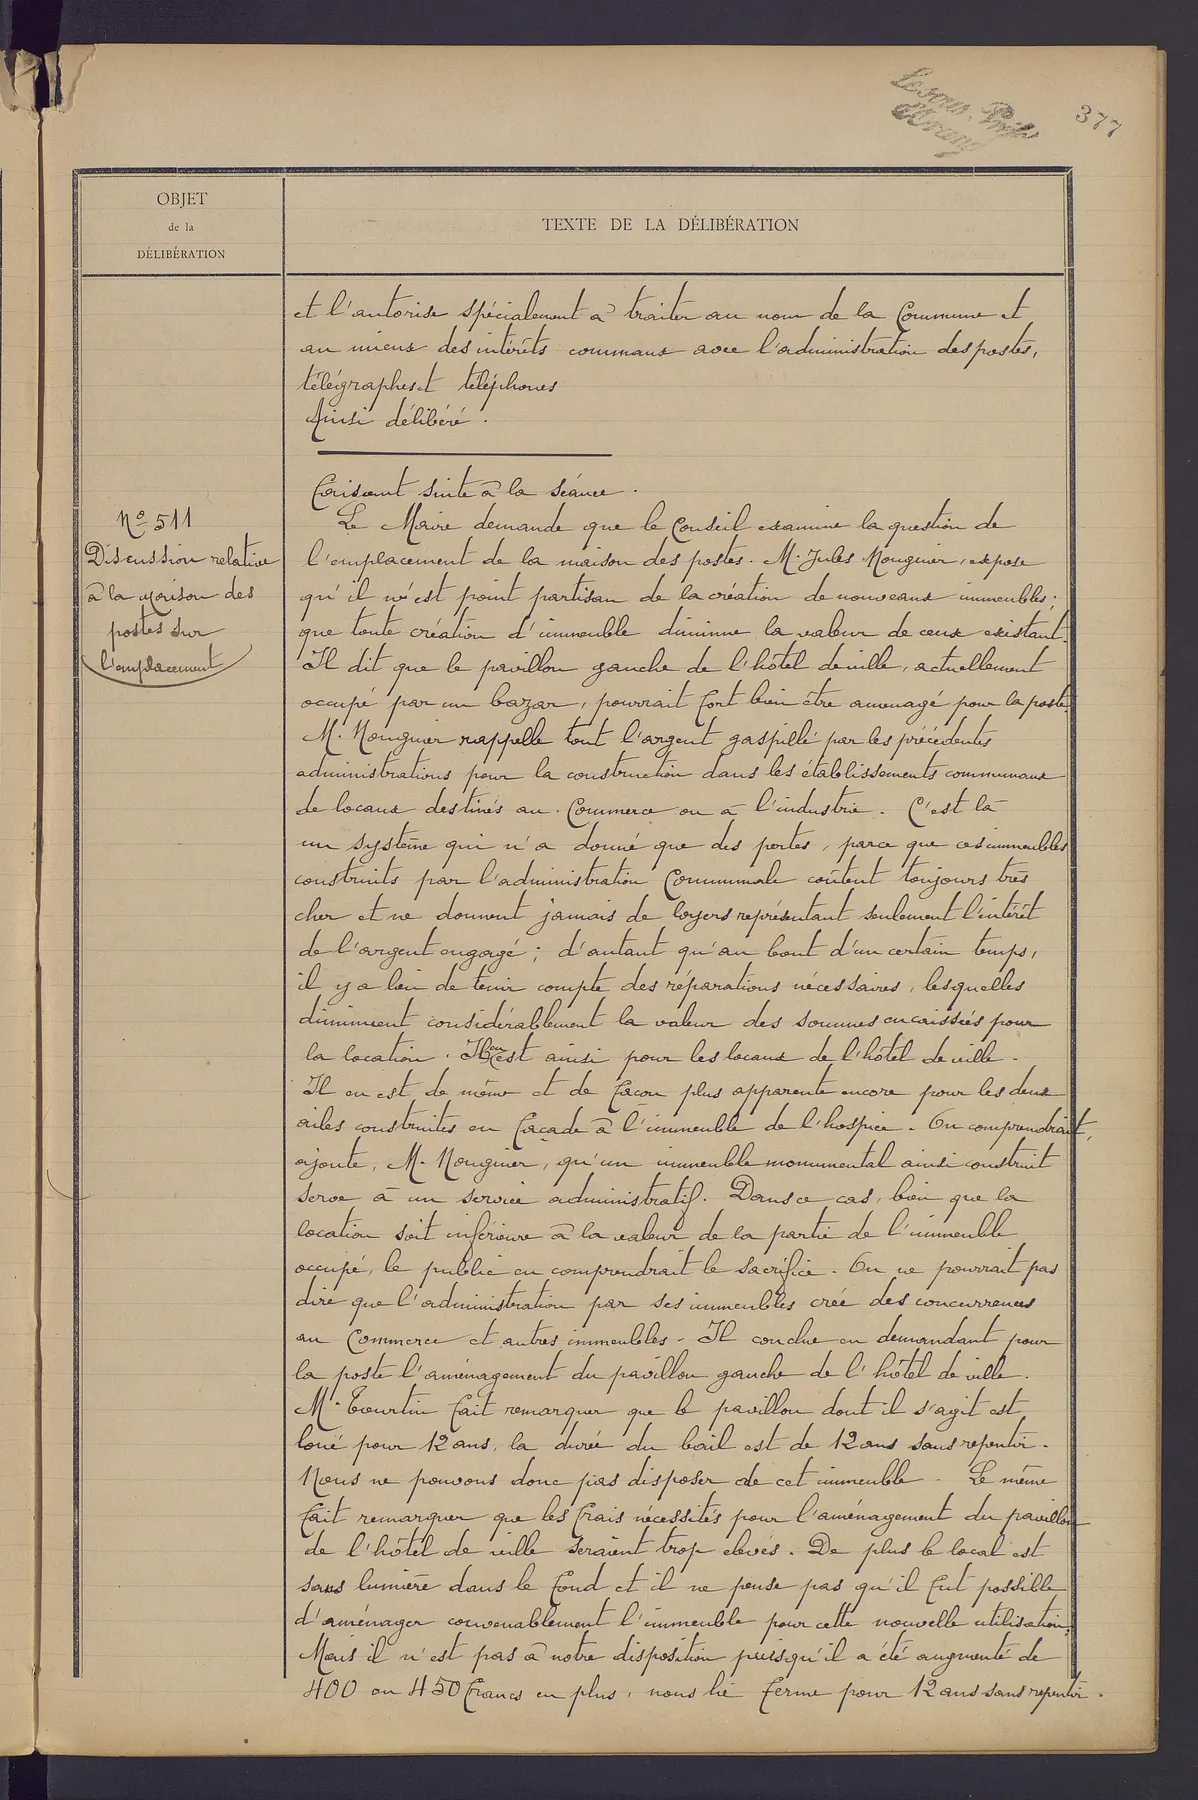 377
OBJET
de la
DÉLIBÉRATION
TEXTE DE LA DÉLIBÉRATION
et l'autorise spécialement à traiter au nom de la Commune et
au mieux des intérêts communaux avec l'administration des postes,
télégraphes et téléphones
Ainsi délibéré.
Faisant suite à la séance.
N° 511
Discussion relative
à la maison des
postes sur
l'emplacement
Le Maire demande que le Conseil examine la question de
l'emplacement de la maison des postes. M. Jules Mouguier, expose
qu'il n'est point partisan de la création de nouveaux immeubles;
que toute création d'immeuble diminue la valeur de ceux existant.
Il dit que le pavillon gauche de l'hôtel de ville, actuellement
occupé par un bazar, pourrait fort bien être aménagé pour la poste.
M. Mouguier rappelle tout l'argent gaspillé par les précédentes
administrations pour la construction dans les établissements communaux
de locaux destinés au Commerce ou à l'industrie. C'est là
un système qui n'a donné que des pertes, parce que ces immeubles
construits par l'administration Communale coûtent toujours très
cher et ne donnent jamais de loyers représentant seulement l'intérêt
de l'argent engagé; d'autant qu'au bout d'un certain temps,
il y a lieu de tenir compte des réparations nécessaires, lesquelles
diminuent considérablement la valeur des sommes encaissées pour
la location. Il en est ainsi pour les locaux de l'hôtel de ville.
Il en est de même et de façon plus apparente encore pour les deux
ailes construites en façade à l'immeuble de l'hospice. On comprendrait,
ajoute, M. Mouguier, qu'un immeuble monumental ainsi construit
serve à un service administratif. Dans ce cas, bien que la
location soit inférieure à la valeur de la partie de l'immeuble
occupé, le public en comprendrait le sacrifice. On ne pourrait pas
dire que l'administration par ses immeubles crée des concurrences
au Commerce et autres immeubles. Il conclue en demandant pour
la poste l'aménagement du pavillon gauche de l'hôtel de ville.
M. Tourtin fait remarquer que le pavillon dont il s'agit est
loué pour 12 ans, la durée du bail est de 12 ans sans repentir.
Nous ne pouvons donc pas disposer de cet immeuble. Le même
fait remarquer que les frais nécessités pour l'aménagement du pavillon
de l'hôtel de ville seraient trop élevés. De plus le local est
sans lumière dans le fond et il ne pense pas qu'il fut possible
d'aménager convenablement l'immeuble pour cette nouvelle utilisation;
Mais il n'est pas à notre disposition puisqu'il a été augmenté de
400 ou 450 francs en plus, nous lié ferme pour 12 ans sans repentir.